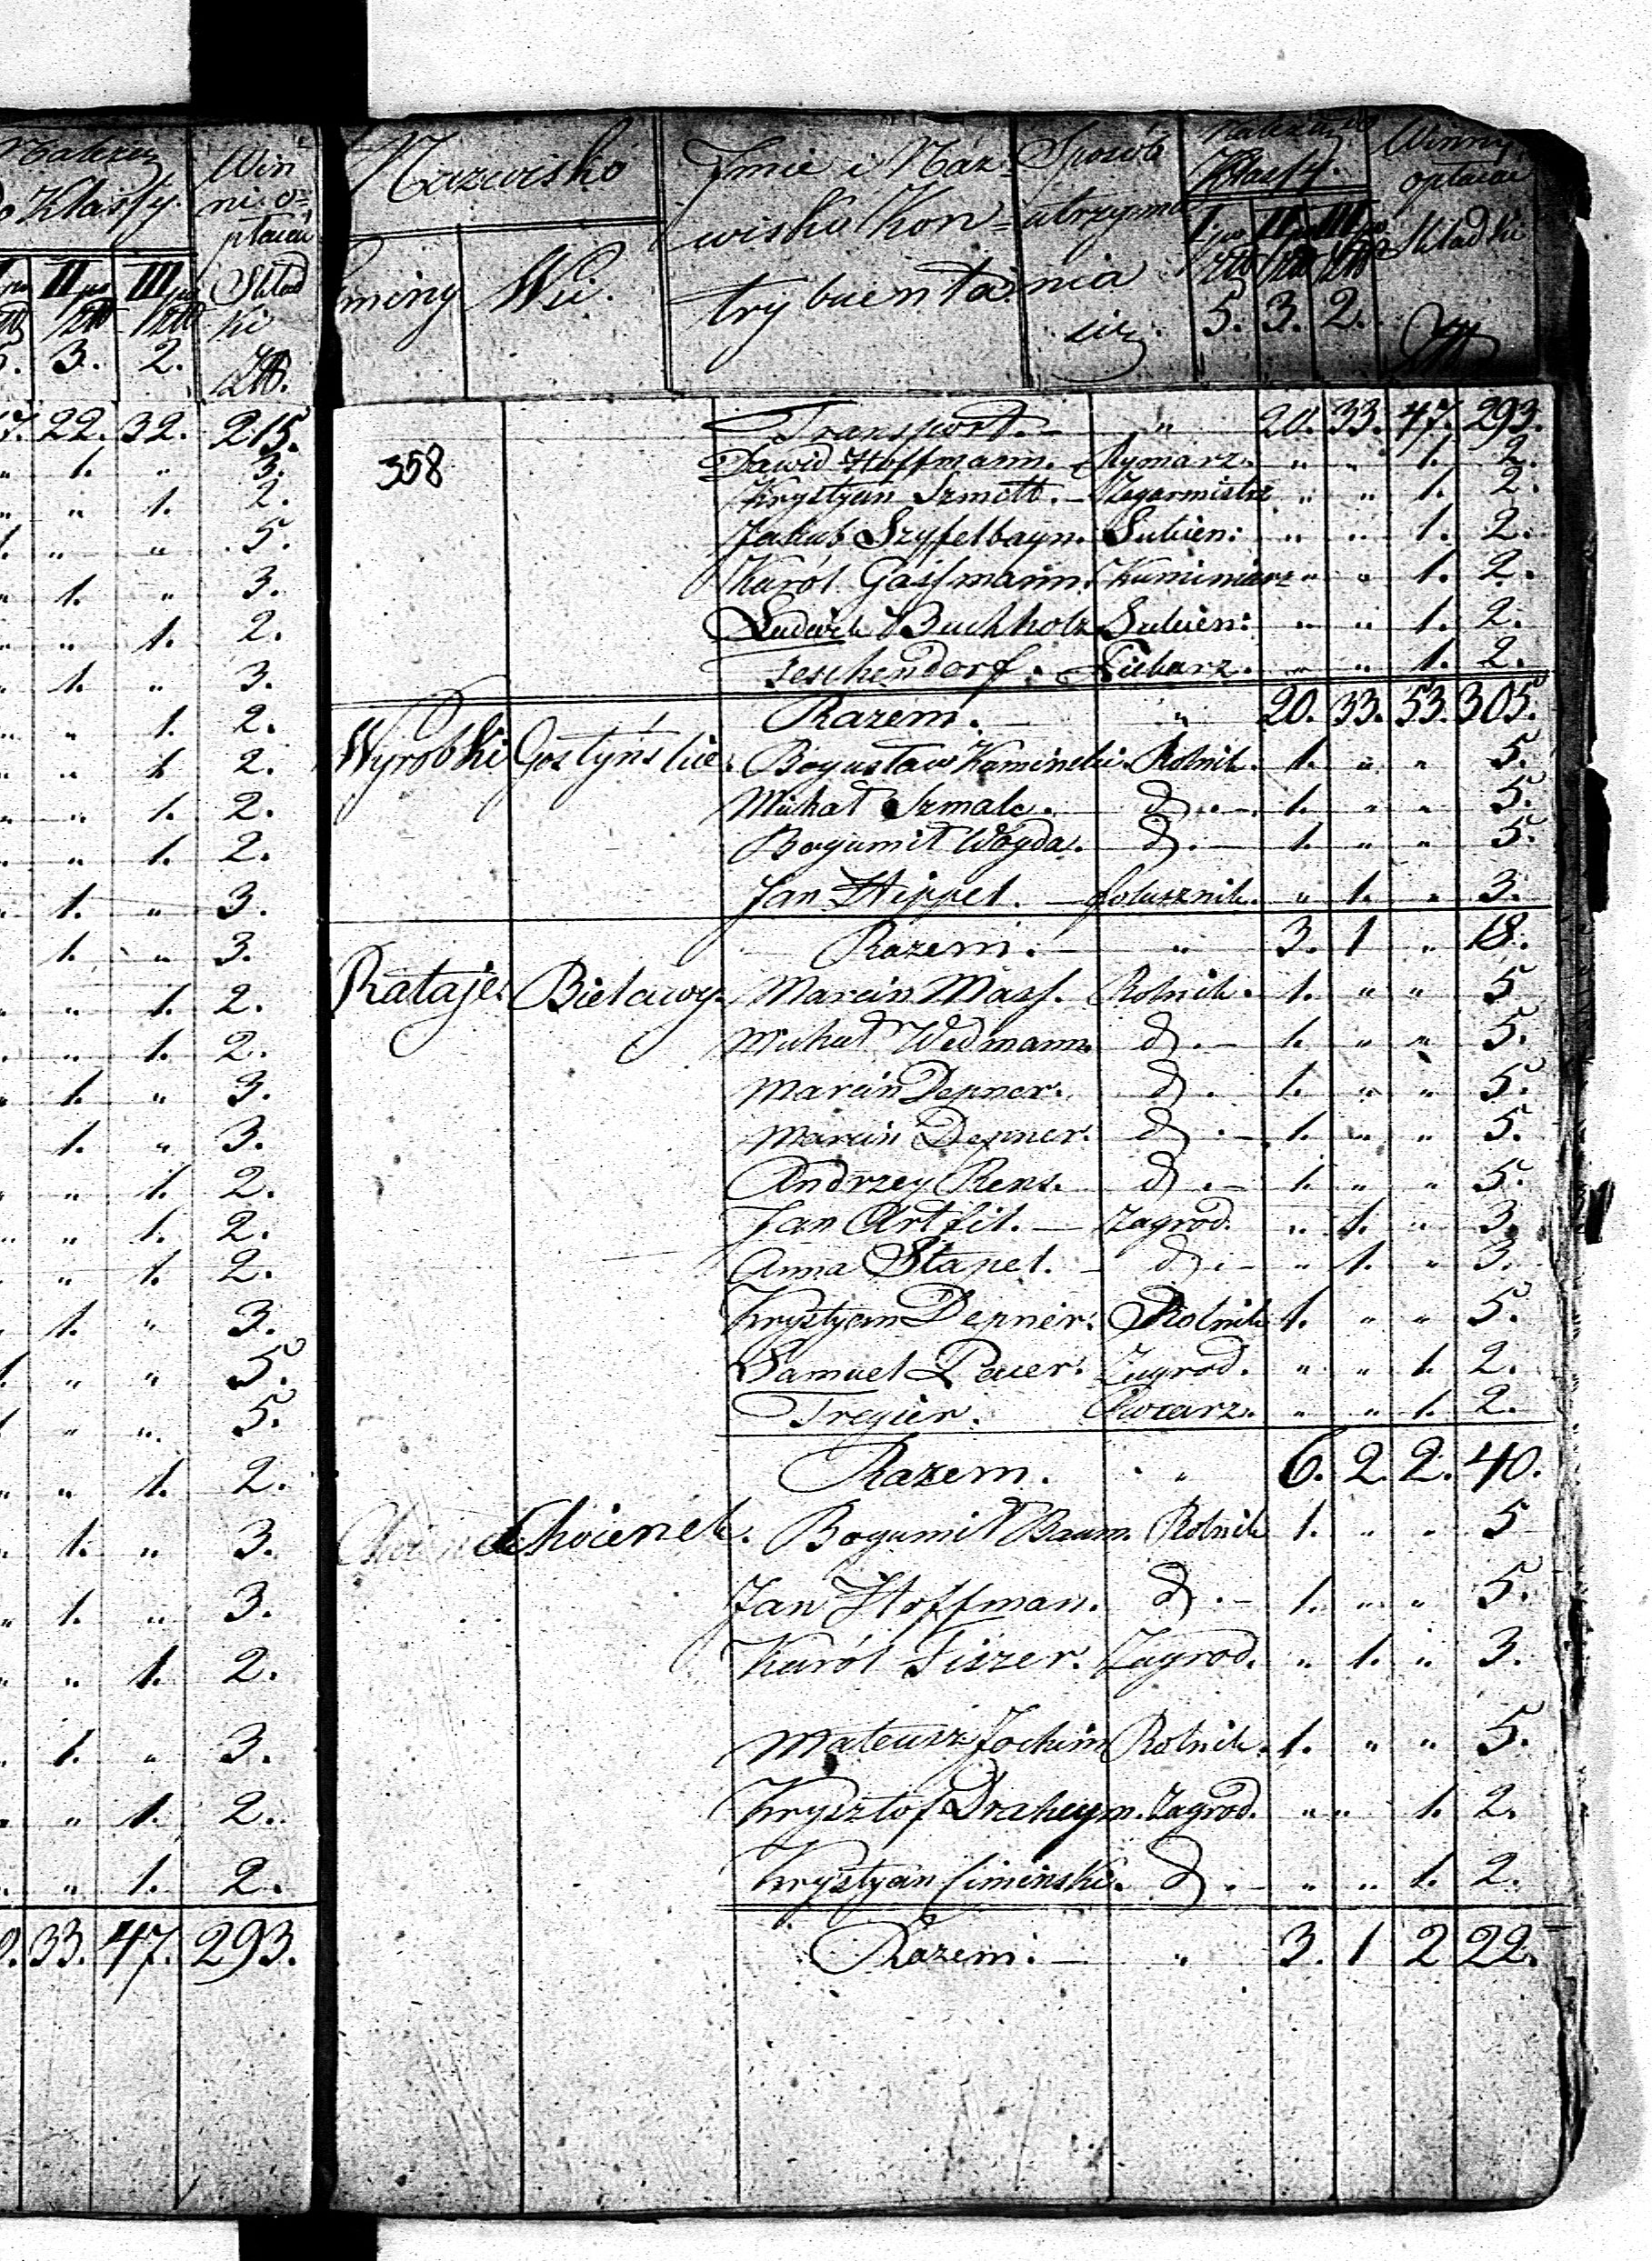 Należą
do Klassy.
Win
ni o=
płacać
Skład
ki
II po III po
złt złt
3. 2. złt.
7. 22. 32. 215.
" 1. " 3.
" " 1. 2.
1. " " 5.
" 1. " 3.
" " 1. 2.
" 1. " 3.
" " 1. 2.
" " 1. 2.
" " 1. 2.
" " 1. 2.
" 1. " 3.
1. " 3.
" " 1. 2.
" " 1. 2.
" 1. " 3.
1. " 3.
" " 1. 2.
" " 1. 2.
" " 1. 2.
1. " 3.
1. " " 5.
1 " " 5.
" " 1. 2.
" 1. " 3.
" 1. " 3.
" " 1. 2.
" 1. " 3.
" " 1. 2.
" " 1. 2.
0. 33. 47. 293.
Nazwisko
Gminy Wsi.
Jmie i Naz=
wisko Kon=
trybuenta
Sposób
utrzyma
nia
się
Należą do
Klassy.
I po II po III po
złt złt złt
5. 3. 2.
Winny
opłacać
Składki
358
Transport. — " 20. 33. 47. 293.
Dawid Hoffmann. Rymarz. " " 1. 2.
Krystyan Szmitt. — Zegarmistrz " " 1. 2.
Jakub Szyfelbayn. Sukien: " " 1. 2.
Karól Gassmann. Kuminiarz " " 1. 2.
Ludwik Buchholz Sukien: " " 1. 2.
Teschendorf. " " 1. 2.
Razem. — " 20. 33. 53. 305.
Wyrobki Gostyńskie. Bogusław Kaminski. Rolnik. 1. " " 5.
Michał Szmalc. d. — 1. " " 5.
Bogumił Wogda. d. — 1. " " 5.
Jan Hippel. — folusznik. " 1. " 3.
Razem. — " 3. 1 " 18.
Rataje. Bielawy. Marcin Mass. Rolnik. 1. " " 5
Michał Wedmann. d. — 1. " " 5.
Marcin Depner. d. 1. " " 5.
Marcin Depner. d. — 1. " " 5.
Andrzey Rens. d. — 1. " " 5.
Jan Artfil. — Zagrod. " 1. " 3.
Anna Stapel. — d. — " 1. " 3.
Krystyan Depner. Rolnik 1. " " 5.
Samuel Peuer. Zagrod. " " 1. 2.
Tregier. Owczarz. " " 1. 2.
Razem. " 6. 2. 2. 40.
Chocenek. Bogumił Baum. Rolnik 1. " " 5
Jan Hoffman. d. — 1. " " 5.
Karól Fiszer. Zagrod. " 1. " 3.
Mateusz Jochim Rolnik. 1. " " 5.
Krysztof Draheym. Zagrod. " " 1. 2.
Krystyan Ciminski. d. — " " 1. 2.
Razem. — " 3. 1 2 22.